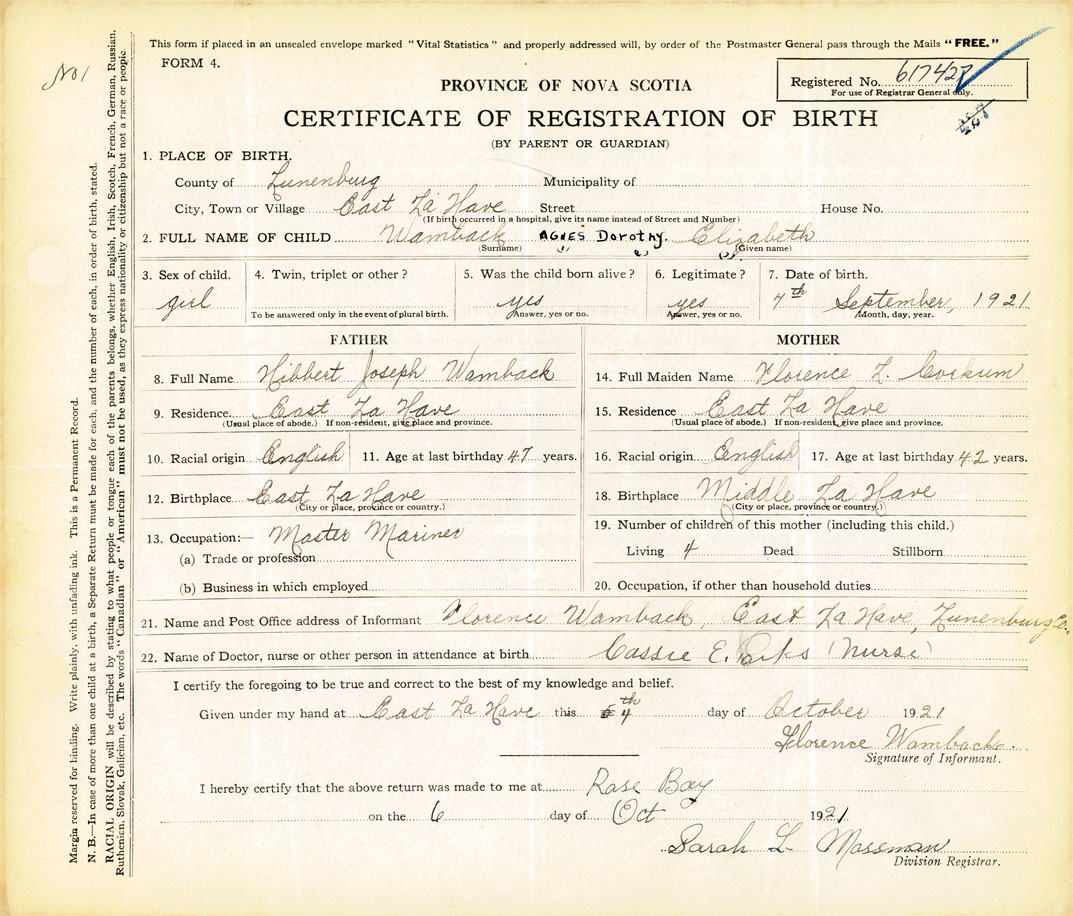 This form if placed in an unsealed envelope marked "Vital Statistics" and properly addressed will, by order of the Postmaster General pass through the Mails "FREE."
No 1
FORM 4.
Registered No. 617427
For use of Registrar General only.
PROVINCE OF NOVA SCOTIA
CERTIFICATE OF REGISTRATION OF BIRTH
(BY PARENT OR GUARDIAN)
1. PLACE OF BIRTH.
County of Lunenburg Municipality of
City, Town or Village East La Have Street House No.
(If birth occurred in a hospital, give its name instead of Street and Number)
2. FULL NAME OF CHILD Wamback AGNES Dorothy. Elizabeth
(Surname) (Given name)
3. Sex of child. 4. Twin, triplet or other? 5. Was the child born alive? 6. Legitimate? 7. Date of birth.
girl yes yes 7th September, 1921
To be answered only in the event of plural birth. Answer, yes or no. Answer, yes or no. Month, day, year.
FATHER MOTHER
8. Full Name Hibbert Joseph Wamback 14. Full Maiden Name Florence L. Corkum
9. Residence East La Have 15. Residence East La Have
(Usual place of abode.) If non-resident, give place and province. (Usual place of abode.) If non-resident, give place and province.
10. Racial origin English 11. Age at last birthday 47 years. 16. Racial origin English 17. Age at last birthday 42 years.
12. Birthplace East La Have 18. Birthplace Middle La Have
(City or place, province or country.) (City or place, province or country.)
13. Occupation:— Master Mariner 19. Number of children of this mother (including this child.)
(a) Trade or profession Living 4 Dead Stillborn
(b) Business in which employed 20. Occupation, if other than household duties
21. Name and Post Office address of Informant Florence Wamback, East La Have, Lunenburg Co.
22. Name of Doctor, nurse or other person in attendance at birth Cassie E. (Nurse)
I certify the foregoing to be true and correct to the best of my knowledge and belief.
Given under my hand at East La Have this 4th day of October 1921
Florence Wamback
Signature of Informant.
I hereby certify that the above return was made to me at Rose Bay
on the 6 day of Oct 1921
Sarah L. Mossman
Division Registrar.
Margin reserved for binding. Write plainly, with unfading ink. This is a Permanent Record.
N. B.—In case of more than one child at a birth, a Separate Return must be made for each, and the number of each, in order of birth, stated.
RACIAL ORIGIN will be described by stating to what people or tongue each of the parents belongs, whether English, Irish, Scotch, French, German, Russian,
Ruthenian, Slovak, Galician, etc. The words "Canadian" or "American" must not be used, as they express nationality or citizenship but not a race or people